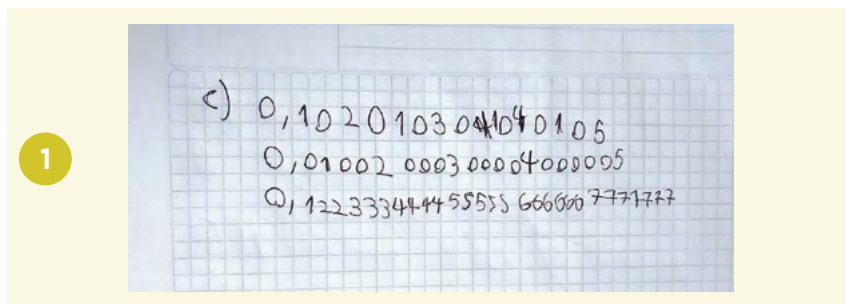 1
c) 0,102010301040105
0,01002 0003 00004000005
0,122333444455555 666666 7777777